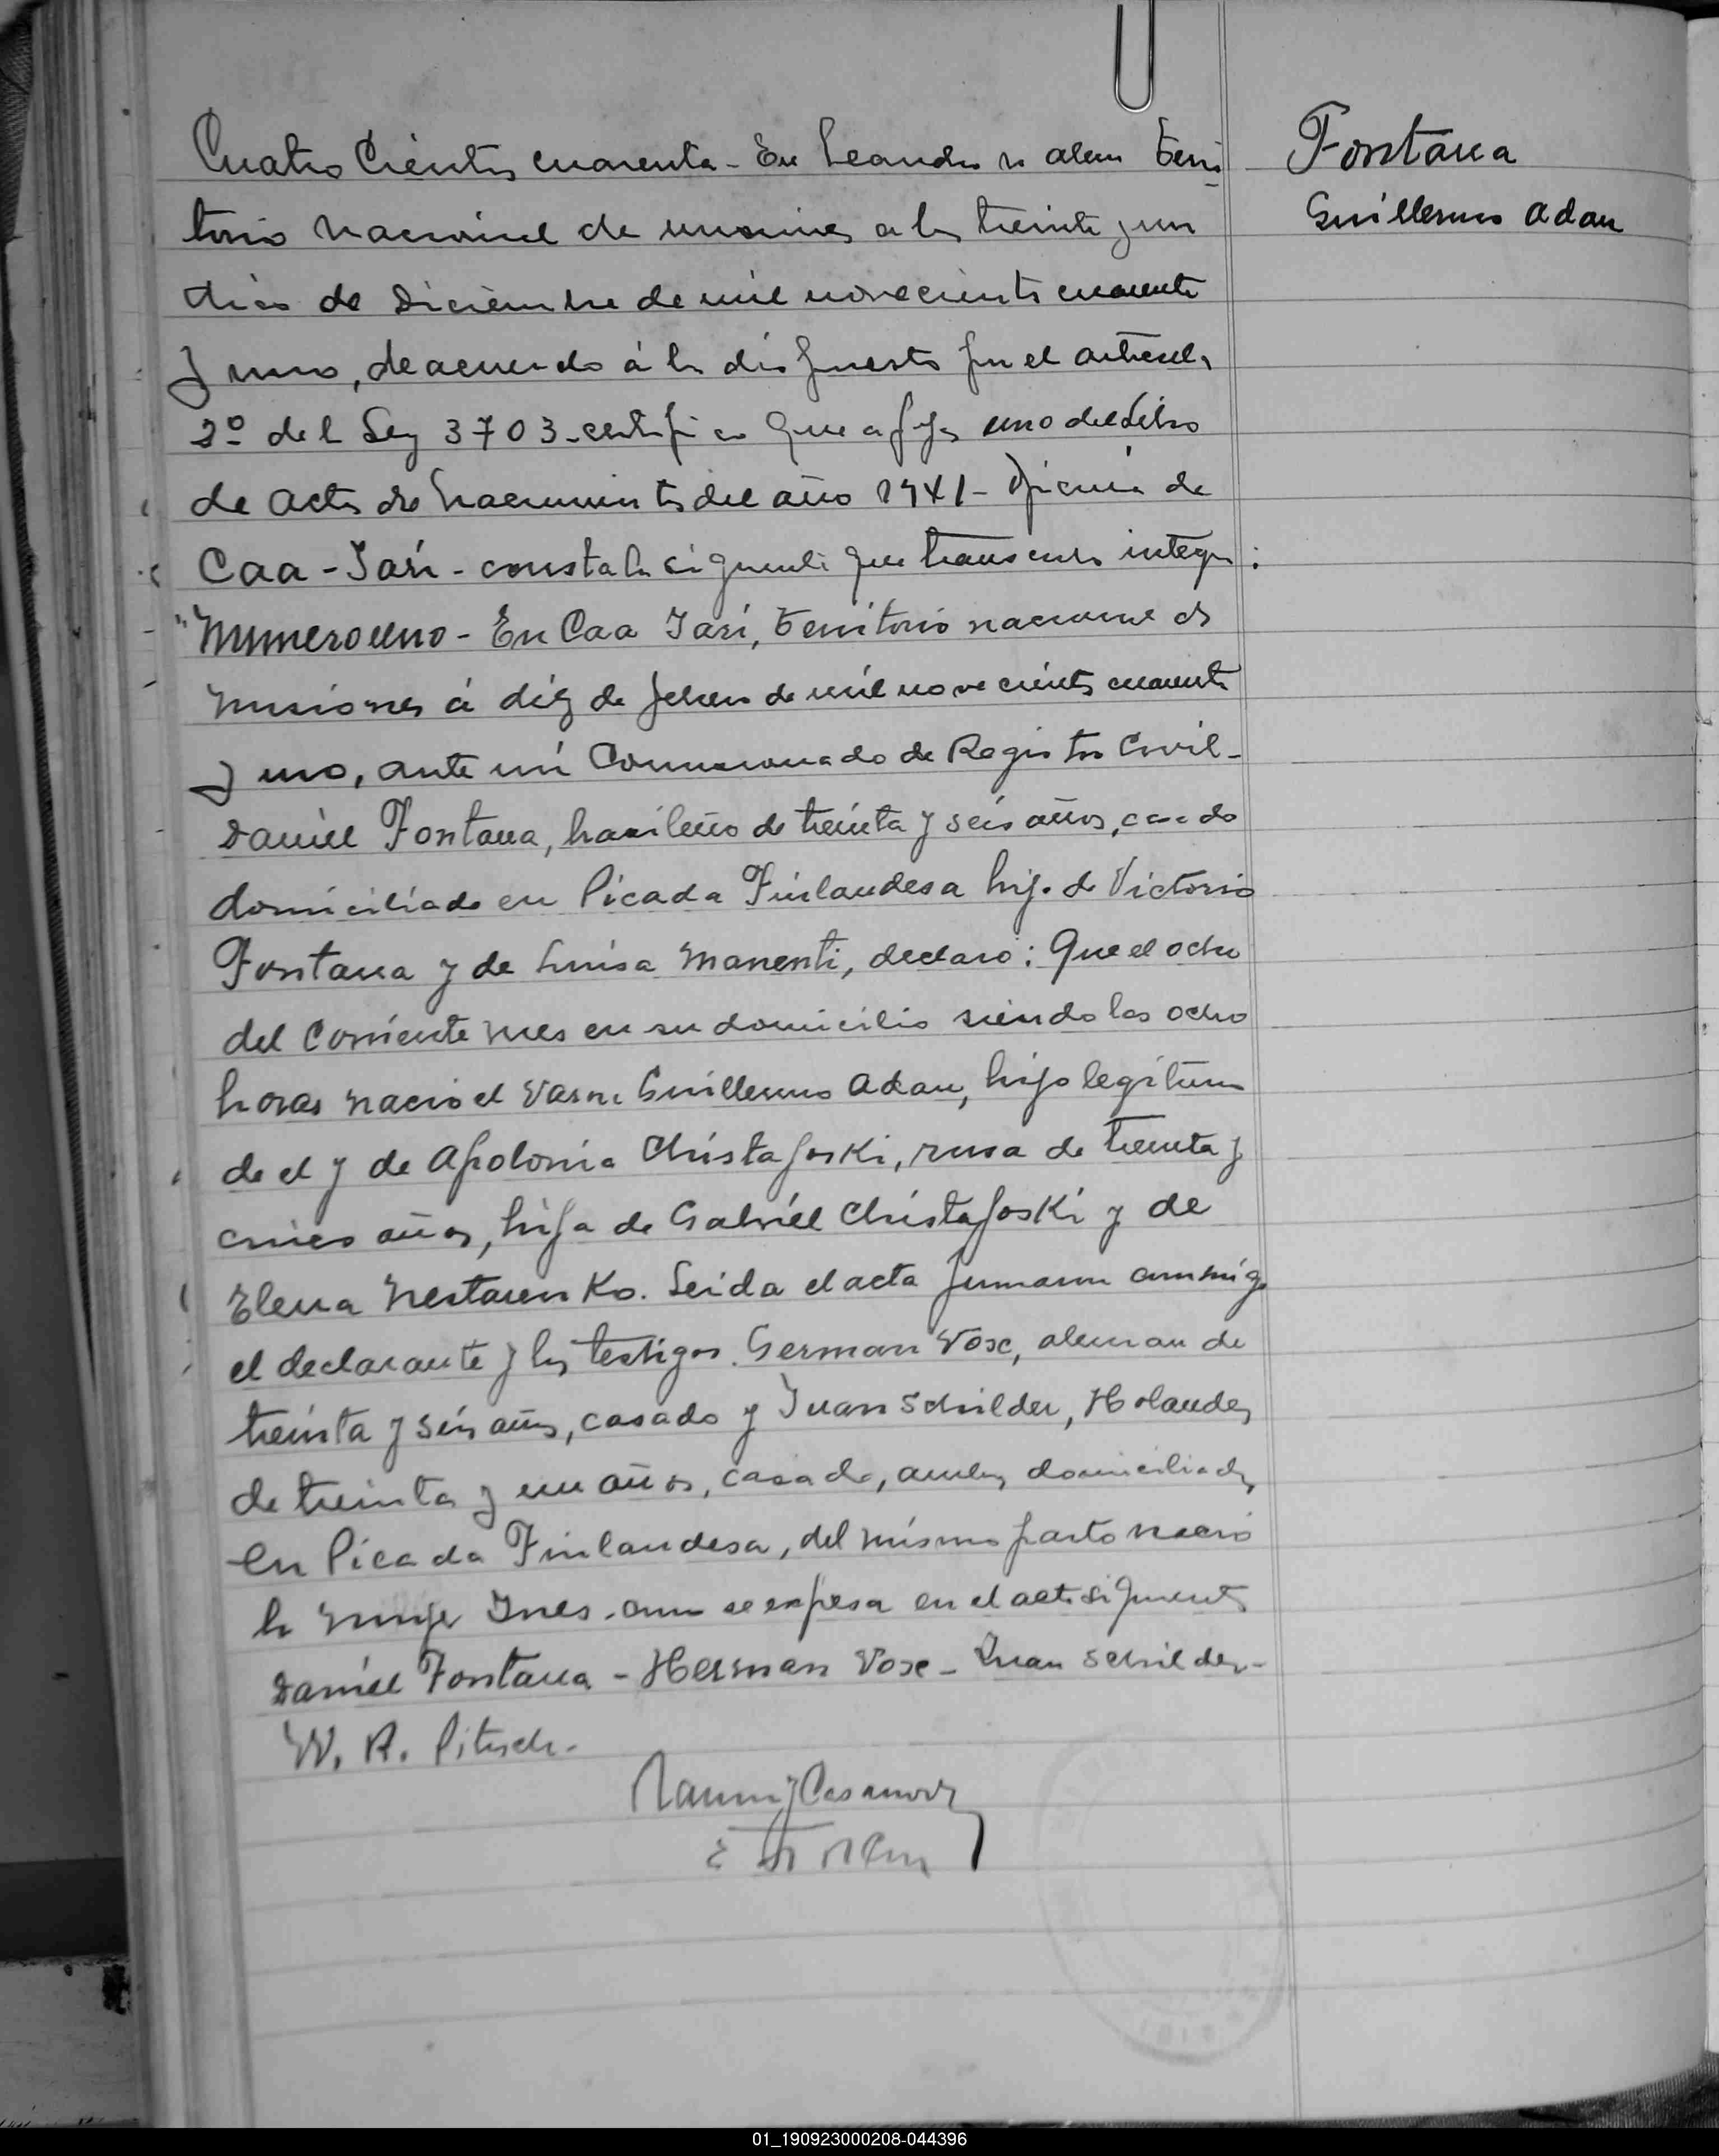 Cuatro Cientos cuarenta - En Leandro n alem Terri-
torio nacional de misiones a los treinta y un
dias de Diciembre de mil novecientos cuarenta
y uno, de acuerdo á lo dispuesto por el articulo
2º del Ley 3703 - certifico que a fojas uno del Libro
de actas de nacimientos del año 1941 - Oficina de
Caa - Jari - consta lo siguiente que transcribo integro:
"Numero uno - En Caa Jari, Territorio nacional de
misiones á diez de febrero de mil novecientos cuarenta
y uno, ante mi Comisionado de Registro Civil -
Daniel Fontana, brasileño de treinta y seis años, casado
domiciliado en Picada Finlandesa hijo de Victorio
Fontana y de Luisa Manenti, declaro: Que el ocho
del Corriente mes en su domicilio siendo las ocho
horas nacio el Varon Guillermo Adan, hijo legitimo
de el y de Apolonia Christafoski, rusa de treinta y
cinco años, hija de Gabriel Christafoski y de
Elena Nestarenko. Leida el acta firmaron conmigo
el declarante y los testigos German Vox, aleman de
treinta y seis años, casado y Juan Schilder, Holandes
de treinta y un años, casado, ambos domiciliados
en Picada Finlandesa, del mismo parto nacio
la mujer Ines. como se expresa en el acta siguiente
Daniel Fontana - Herman Vox - Juan Schilder -
W. R. Pitsch.
Fontana
Guillermo Adan
01_190923000208-044396